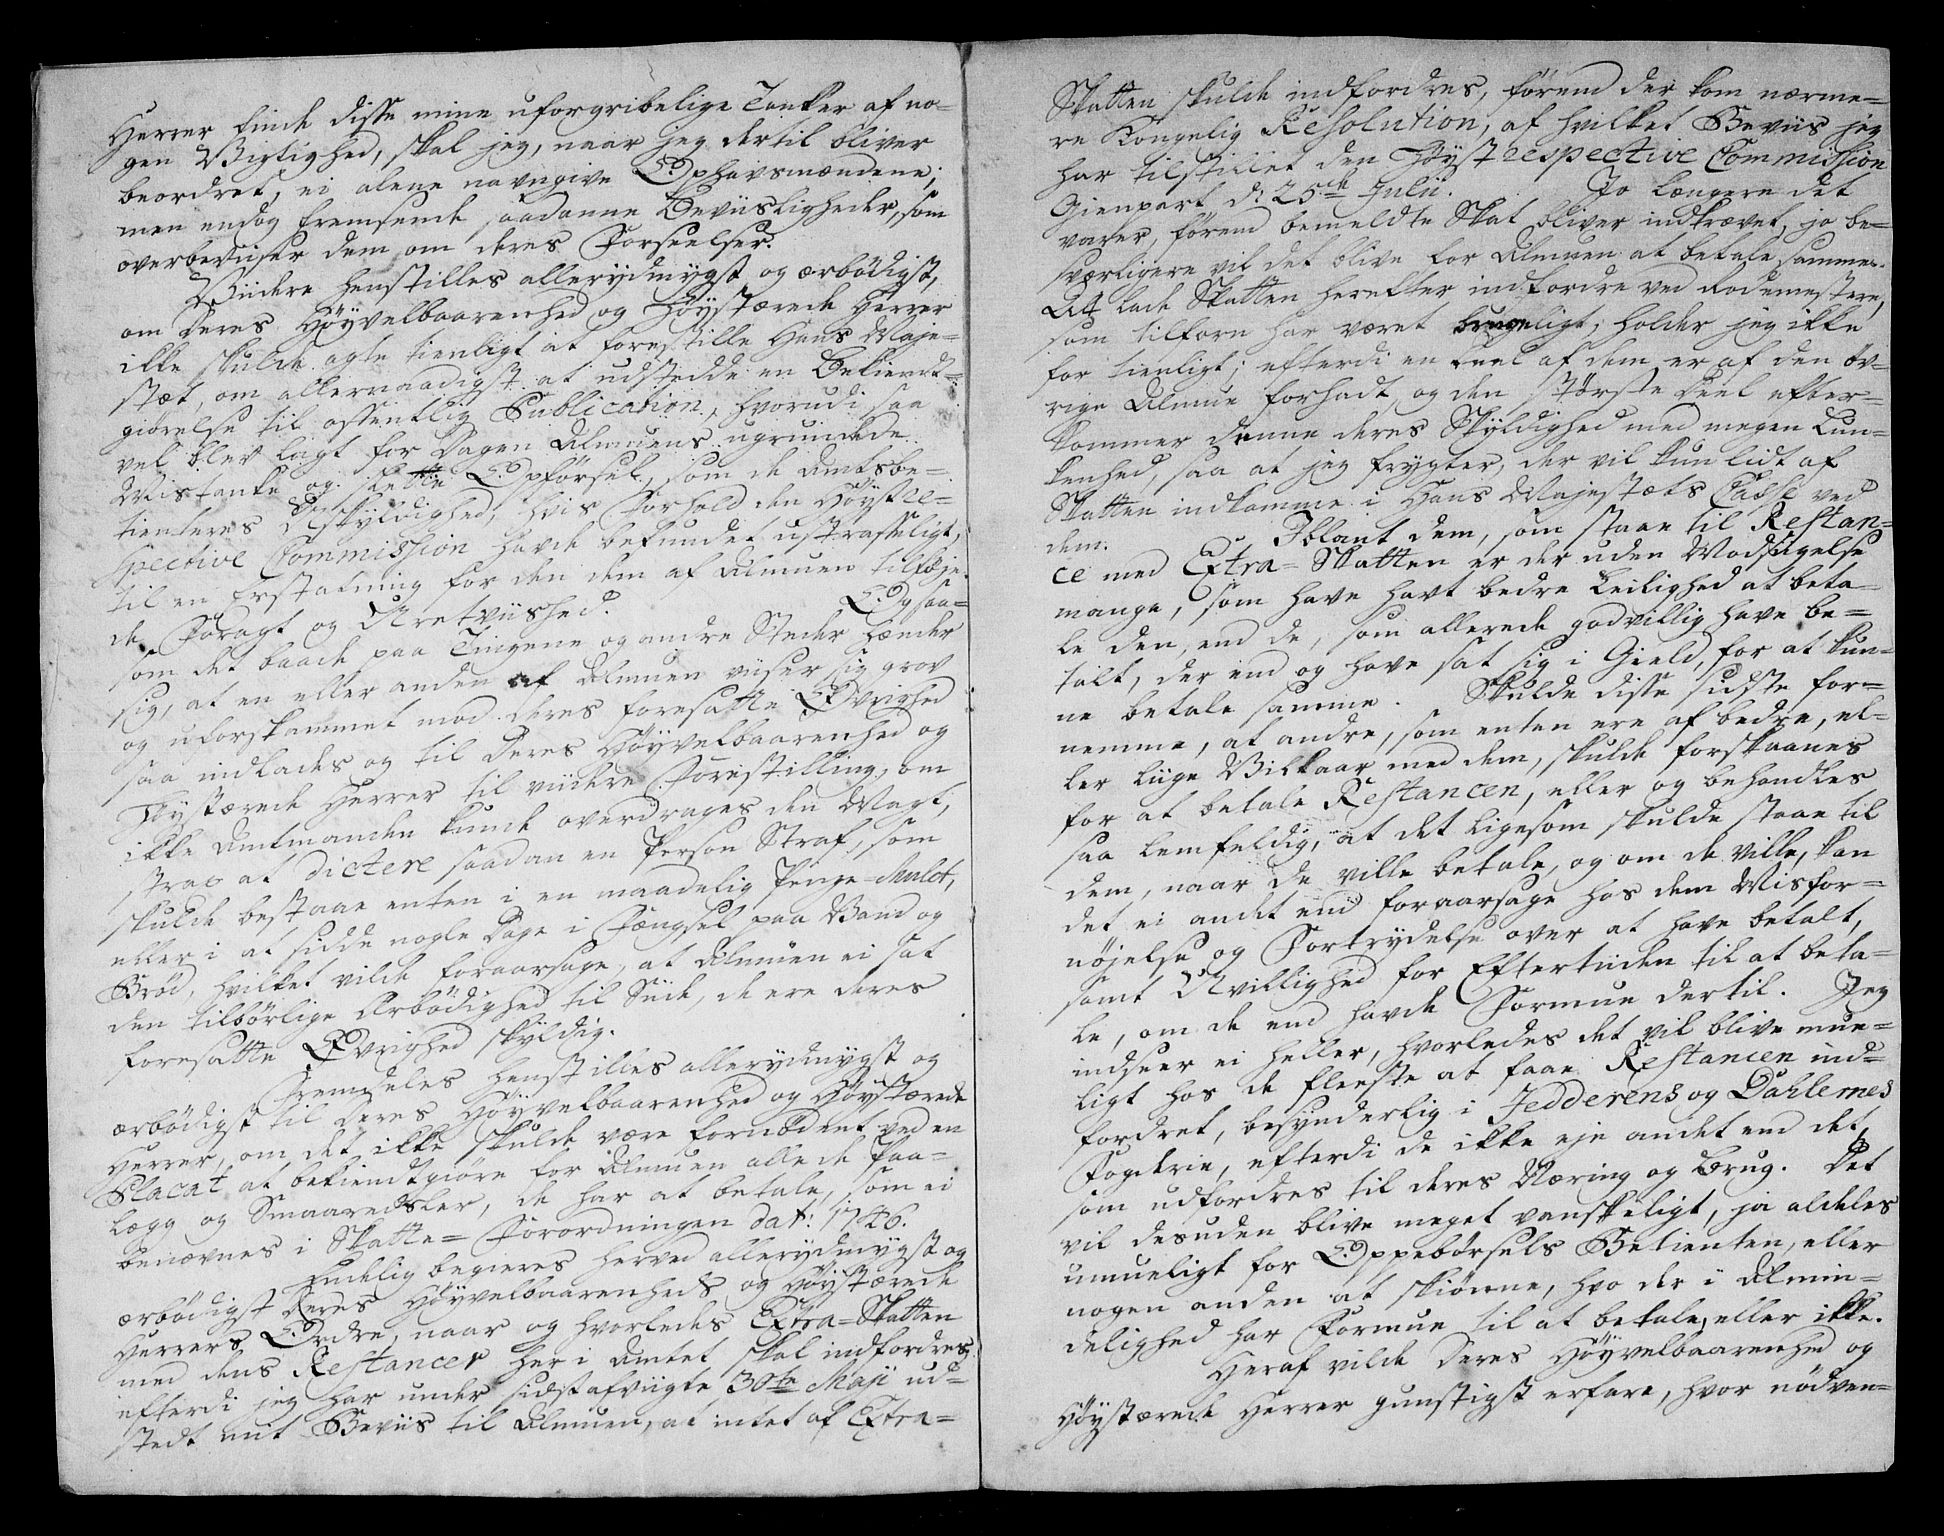 Herrer finde disse mine uforgribelige Tanker af no-
gen Vigtighed, skal jeg, naar jeg dertil bliver
beordret, ei alene navngive Ophavsmændene;
men endog fremsende saadanne Beviisligheder, som
overbeviser dem om deres Forseelser.
Viidere henstilles allerydmygst og ærbödigst,
om Deres Höyvelbaarenhed og Höystærede Herrer
ikke skulde agte tienligt at forestille Hans Maje-
stæt, om allernaadigst at udstedde en Bekiendt-
giörelse til offentlig Publication, hvorudi saa
vel blev lagt for Dagen Almuens ugrundede
Mistanke og slette Opförsel, som de Amtsbe-
tienteres Uskyldighed, hvis Forhold den Höyst re-
spective Commission havde befundet ustraffeligt,
til en Erstatning for den dem af Almuen tilföje-
de Foragt og Uretviished. Ogsaa-
som det baade paa Tingene og andre Steder hænder
sig, at en eller anden af Almuen viiser sig grov
og uforskammet mod deres foresatte Övrighed
saa indlades og til Deres Höyvelbaarenhed og
Höystærede Herrer til viidere Forestilling, om
ikke Amtmanden kunde overdrages den Magt,
strax at dictere saadan en Person Straf, som
skulde bestaae enten i en maadelig Penge-Mulct,
eller i at sidde nogle Dage i Fængsel paa Vand og
Bröd, hvilket vilde foraarsage, at Almuen ei sat
den tilbörlige Ærbödighed til Siide, de ere deres
foresatte Övrighed skyldig.
Fremdeles henstilles allerydmygst og
ærbödigst til Deres Höyvelbaarenhed og Höystærede
Herrer, om det ikke skulde være fornödent ved en
Placat at bekiendtgiöre for Almuen alle de Paa-
læg og Smaaredsler, de har at betale, som ei
benævnes i Skatte-Forordningen dat: 1746.
Endelig begieres herved allerydmygst og
ærbödigst Deres Höyvelbaarenheds og Höystærede
Herrers Ordre, naar og hvorledes Extra-Skatten
med dens Restancer her i Amtet skal indfordres,
efterdi jeg har under sidstafvigte 30te Maji ud-
stedt mit Beviis til Almuen, at intet af Extra-
Skatten skulde indfordres, förend der kom nærme-
re Kongelig Resolution, af hvilket Beviis jeg
har tilstillet den Höyst respective Commission
Gienpart d: 25de Julii. Jo længere det
varer, förend bemeldte Skat bliver indkrævet, jo be-
sværligere vil det blive for Almuen at betale samme.
At lade Skatten herefter indfordre ved Rodemestere,
som tilforn har været brugeligt, holder jeg ikke
for tienligt; efterdi en Deel af dem er af den öv-
rige Almue forhadt, og den störste Deel efter-
kommer denne deres Skyldighed med megen Lun-
kenhed, saa at jeg frygter, der vil kun lidt af
Skatten indkomme i Hans Majestæts Casse ved
dem. Iblant dem, som staae til Restan-
ce med Extra-Skatten er der uden Modsigelse
mange, som have havt bedre Leilighed at beta-
le den, end de, som allerede godvillig have be-
talt, der end og have sat sig i Gield, for at kun-
ne betale samme. Skulde disse sidste for-
nemme, at andre, som enten ere af bedre, el-
ler liige Vilkaar med dem, skulde forskaanes
for at betale Restancen, eller og behandles
saa lemfeldig, at det ligesom skulde staae til
dem, naar de ville betale, og om de ville, kan
det ei andet end foraarsage hos dem Misfor-
nöjelse og Fortrydelse over at have betalt,
samt Uvillighed for Eftertiiden til at beta-
le, om de end havde Formue dertil. Jeg
indseer ei heller, hvorledes det vil blive mue-
ligt hos de fleeste at faae Restancen ind-
fordret, besynderlig i Jedderens og Dahlernes
Fogderie, efterdi de ikke eje andet end det,
som udfordres til deres Næring og Brug. Det
vil desuden blive meget vanskeligt, ja aldeles
umueligt for Oppebörsels Betienten, eller
nogen anden at skiönne, hvo der i Almin-
delighed har Formue til at betale, eller ikke.
Heraf vilde Deres Höyvelbaarenhed og
Höystærede Herrer gunstigst erfare, hvor nödven-